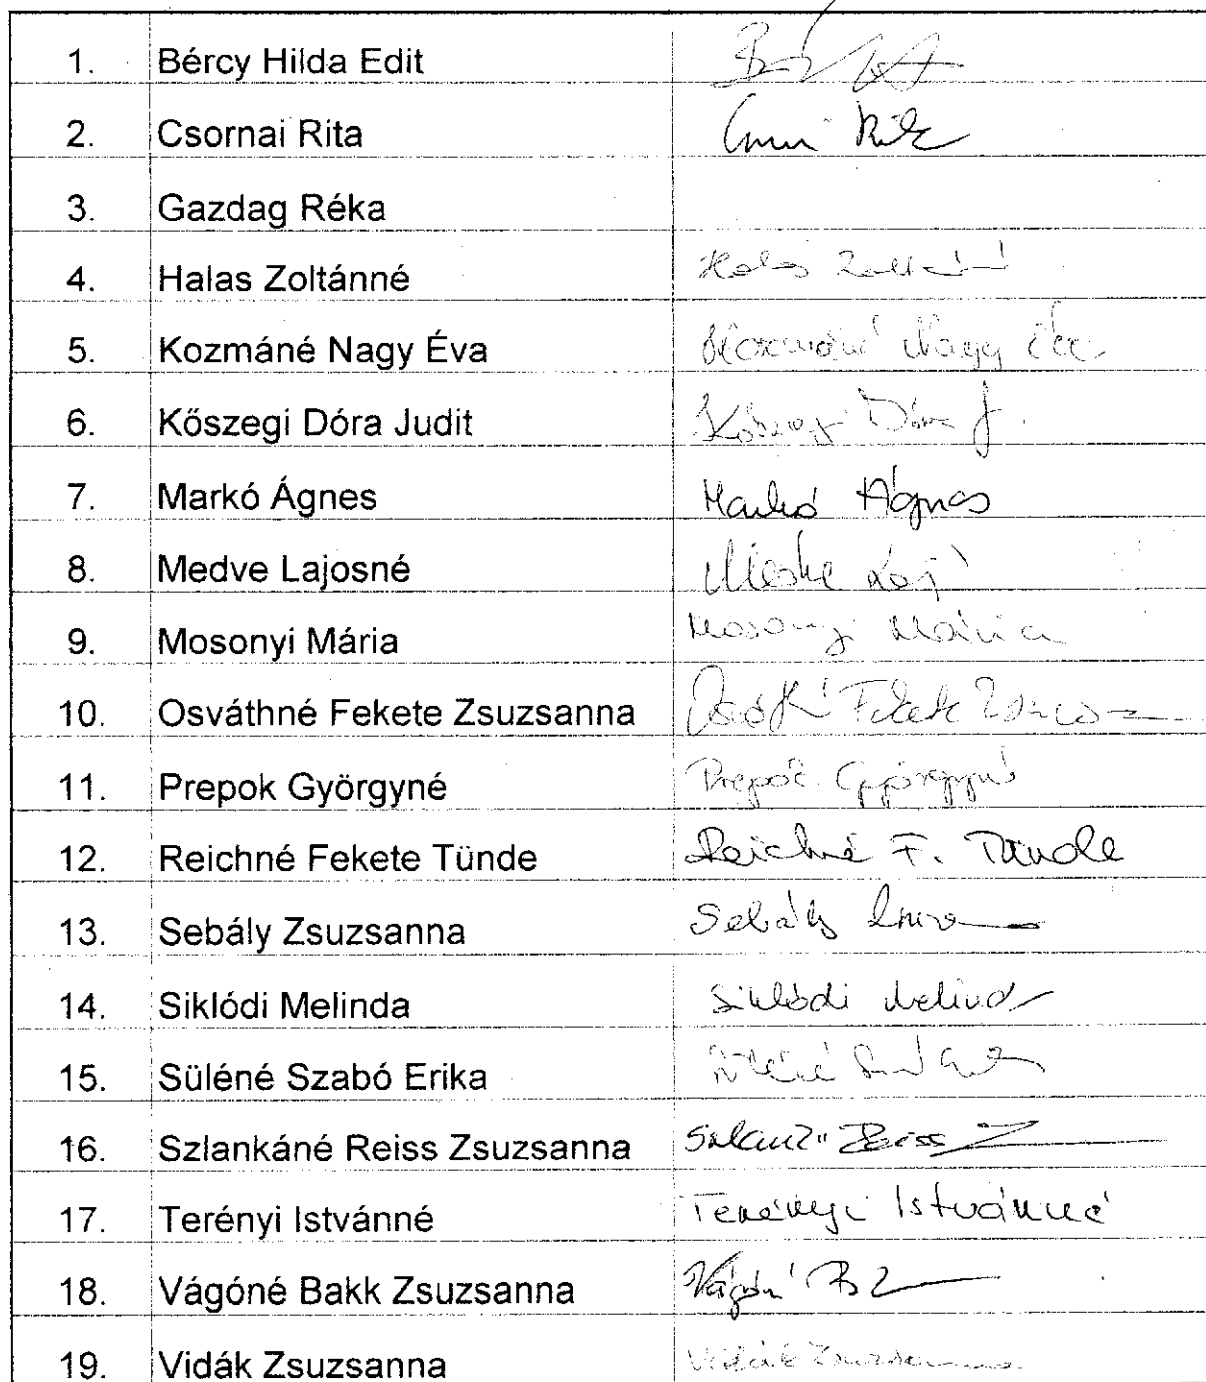 1. Bércy Hilda Edit
2. Csornai Rita
3. Gazdag Réka
4. Halas Zoltánné Halas Zoltánné
5. Kozmáné Nagy Éva Kozmáné Nagy Éva
6. Kőszegi Dóra Judit Kőszegi Dóra J.
7. Markó Ágnes Markó Ágnes
8. Medve Lajosné
9. Mosonyi Mária Mosonyi Mária
10. Osváthné Fekete Zsuzsanna
11. Prepok Györgyné Prepok Györgyné
12. Reichné Fekete Tünde Reichné F. Tünde
13. Sebály Zsuzsanna Sebály
14. Siklódi Melinda Siklódi Melinda
15. Süléné Szabó Erika
16. Szlankáné Reiss Zsuzsanna Reiss Z
17. Terényi Istvánné Terényi Istvánné
18. Vágóné Bakk Zsuzsanna Vágóné B Z
19. Vidák Zsuzsanna Vidák Zsuzsanna